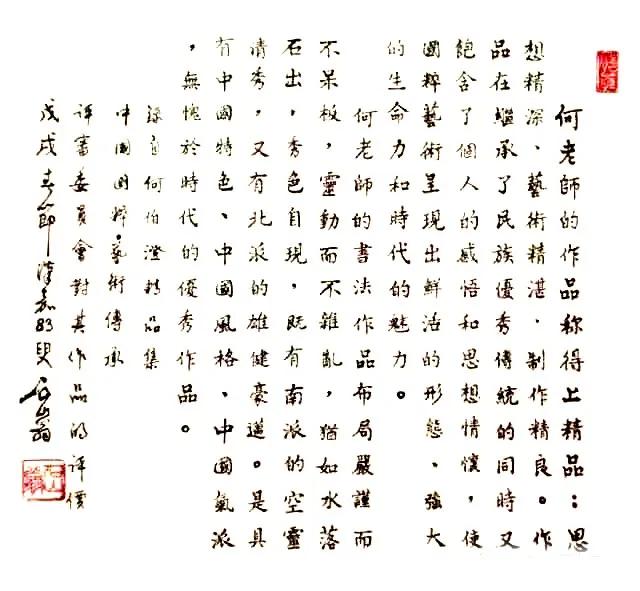 何老師的作品称得上精品：思
想精深、藝術精湛，制作精良。作
品在繼承了民族優秀傳統的同時又
飽含了個人的感悟和思想情懷，使
國粹藝術呈現出鮮活的形態、強大
的生命力和時代的魅力。
何老師的書法作品布局嚴謹而
不呆板，靈動而不雜亂，猶如水落
石出，秀色自現，既有南派的空靈
清秀，又有北派的雄健豪邁。是具
有中國特色、中國風格、中國氣派
，無愧於時代的優秀作品。
錄自何伯澄精品集
中國國粹·藝術傳承
評審委員會對其作品的評價
戊戌春節 83叟